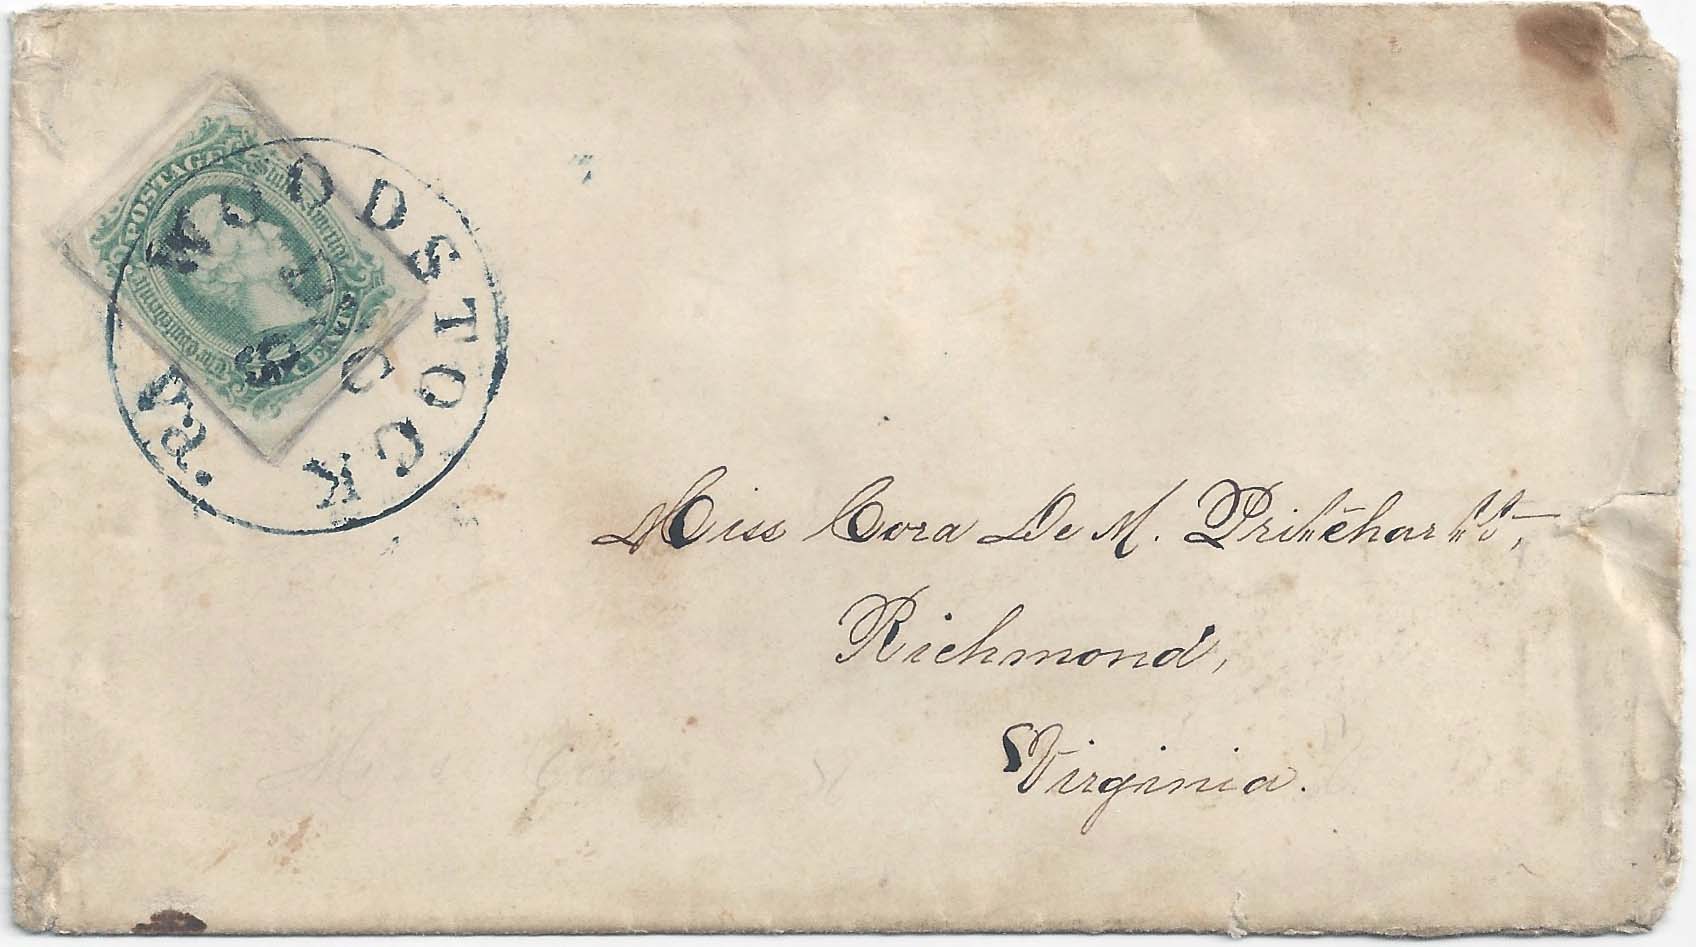 POSTAGE
WOODSTOCK
Va.
Miss Cora De M. Pritchartt,
Richmond,
Virginia.